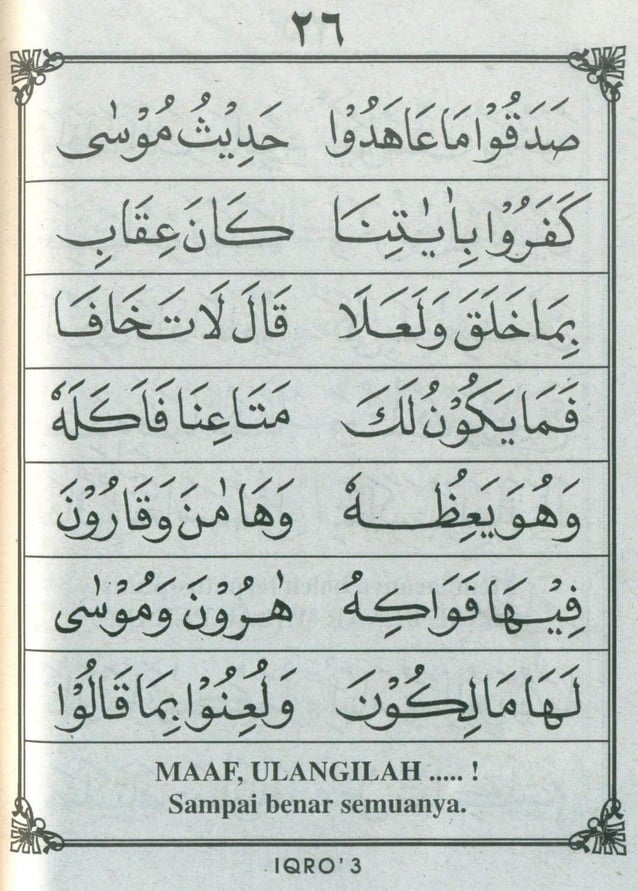 ٢٦
صَدَقُوْا مَا عَاهَدُوْا حَدِيْثُ مُوْسٰى
كَفَرُوْا بِاٰيٰتِنَا كَانَ عِقَابِ
بِمَا خَلَقَ وَلَعَلَا قَالَ لَا تَخَافَا
فَمَا يَكُوْنُ لَكَ مَتَاعِنَا فَاَكَلَهٗ
وَهُوَ يَعِظُهٗ وَهَامٰنَ وَقَارُوْنَ
فِيْهَا فَوَاكِهُ هٰرُوْنَ وَمُوْسٰى
لَهَا مَالِكُوْنَ وَلُعِنُوْا بِمَا قَالُوْا
MAAF, ULANGILAH ..... !
Sampai benar semuanya.
IQRO' 3